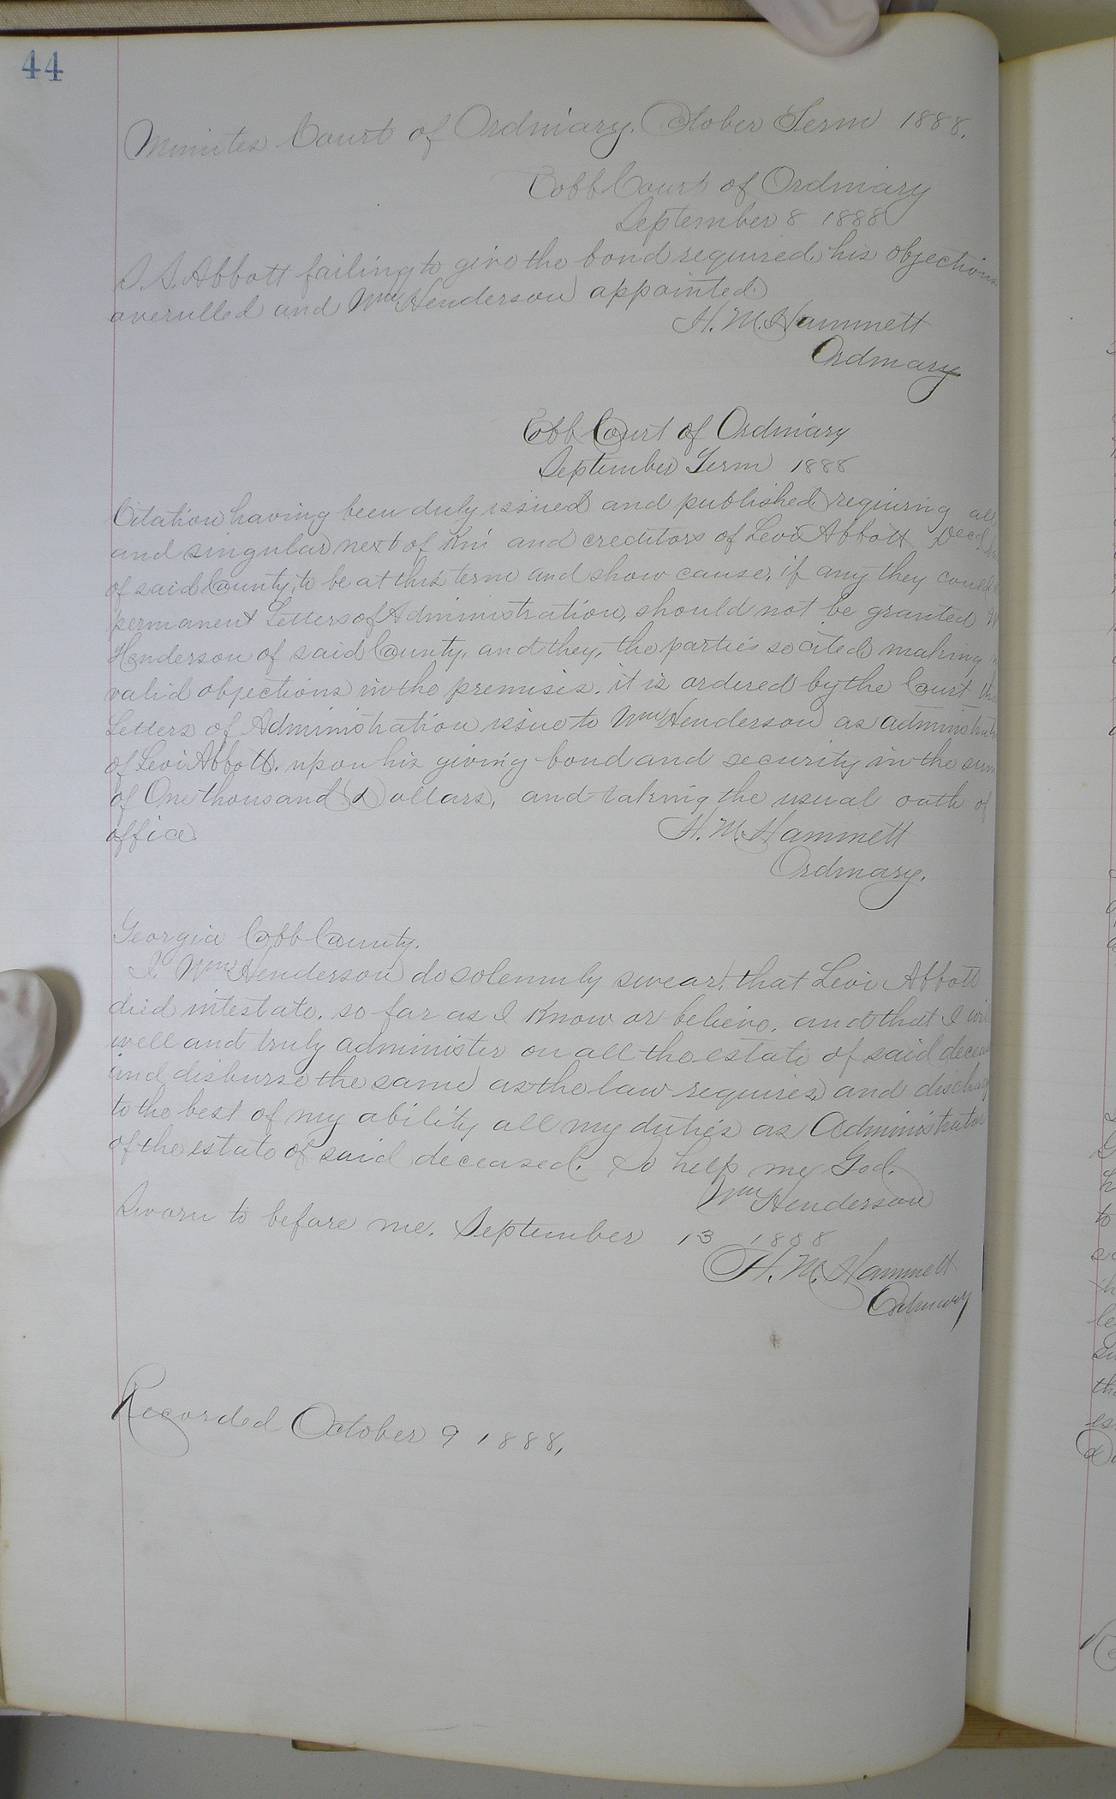 44
Minutes Court of Ordinary. October Term 1888.
Cobb Court of Ordinary
September 8 1888
S. S. Abbott failing to give the bond required his objections
overulled and Wm Henderson appointed
H. M. Hammett
Ordinary
Cobb Court of Ordinary
September Term 1888
Citation having been duly issued and published requiring all
and singular next of Kin and creditors of Levi Abbott Decd
of said County, to be at this term and show cause, if any they could
permanent Letters of Administration, should not be granted
Henderson of said County, and they, the parties so cited making
valid objections in the premises. it is ordered by the Court that
Letters of Administration issue to Wm Henderson as administrator
of Levi Abbott. upon his giving bond and security in the sum
of One thousand Dollars, and taking the usual oath of
office
H. M. Hammett
Ordinary.
Georgia Cobb County.
I. Wm Henderson do solemnly swear, that Levi Abbott
died intestate. so far as I Know or believe, and that I will
well and truly administer on all the estate of said deceased
and disburse the same as the law requires and discharge
to the best of my ability all my duties as Administrator
of the estate of said deceased. So help me God.
Wm Henderson
Sworn to before me. September 13 1888
H. M. Hammett
Ordinary
Recorded October 9 1888,